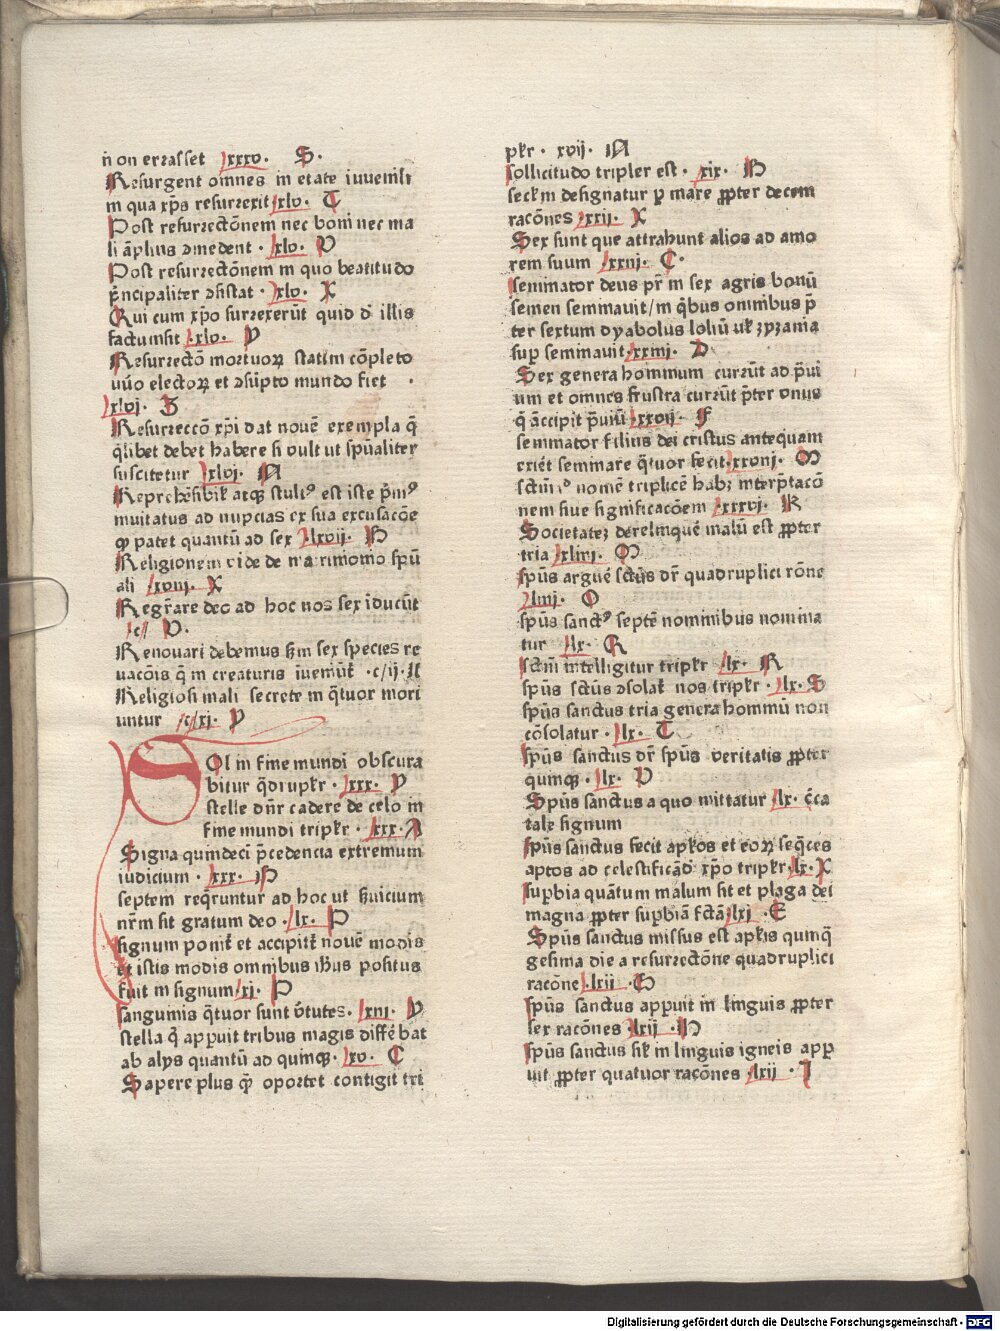 non errasset .xxxv. S.
Resurgent omnes in etate iuvenili
in qua xp̄s resurrexit .xlv. T
Post resurrectōnem nec boni nec ma
li āplius ɔmedent . xlv. V
Post resurrectōnem in quo beatitudo
p̄ncipaliter ɔsistat . xlv. X
Qui cum xp̄o surrexerūt quid d̄ illis
factum sit .xlv. Y
Resurrectō mortuoꝝ statim cōpleto
nūo electoꝝ et ɔsūpto mundo fiet .
xlvi. Z
Resurreccō xp̄i dat nouē exempla q̄
q̄libet debet habere si vult ut spūaliter
suscitetur .xlvi. A
Reprehēsibil' atqꝫ stultꝰ est iste p̄mꝰ
inuitatus ad nupcias ex sua excusacōe
qꝫ patet quantū ad sex .lxvij. H
Religionem vide de matrimonio spū
ali .xviij. X
Regr̄are deo ad hoc nos sex īducūt
.c. V.
Renouari debemus scḋm sex species re
uacōis q̄ in creaturis inuemūt .c.ij. N
Religiosi mali secrete in q̄tuor mori
untur .c.xi. Y
SOl in fine mundi obscura
bitur q̄drupl'r . xxx. Y
stelle dn̄r cadere de celo in
fine mundi tripl'r . xxx. A
Signa quindeci p̄cedencia extremum
iudicium . xxx. H
septem req̄runtur ad hoc ut suicium
nr̄m sit gratum deo . lx. P
signum ponit̄ et accipit̄ nouē modis
et istis modis omnibus ih̄us positus
fuit in signum .xi. P
sanguinis q̄tuor sunt v̄tutes. .xiii. V
stella q̄ apꝑuit tribus magis differebat
ab alijs quantū ad quinqꝫ . xv. C
Sapere plus q̄ oportet contigit tri
pl'r . xvij. A
sollicitudo tripler est . xix. H
secl'm designatur ꝑ mare ꝓpter decem
racōnes .xxij. X
Sex sunt que attrahunt alios ad amo
rem suum .xxiij. C.
seminator deus pr̄ in sex agris bonū
semen seminauit/in q̄bus omnibus p̄
ter sextum dyabolus loliū vel zyzania
suꝑ seminauit .xxiiij. D
Sex genera hominum currūt ad p̄ui
um et omnes frustra currūt p̄ter vnus
q̄ accipit p̄uiū .xxvij. F
seminator filius dei cristus antequam
exiēt seminare q̄tuor fecit .xxviij. M
sctm̄ nomē triplicē habꝫ interp̄tacō
nem siue significacōem .xxxvi. K
Societateꝫ derelinquē malū est ꝓpter
tria .xliij. M
spūs arguē sctūs dr̄ quadruplici rōne
.liiij. O
spūs sanctꝰ septē nominibus nomina
tur .lx. Q
sctm̄ intelligitur tripl'r .lx. R
spūs sctūs ɔsolat̄ nos tripl'r . lx. S
spūs sanctus tria genera hominū non
cōsolatur . lx. T
spūs sanctus dr̄ spūs veritatis ꝓpter
quinqꝫ . lx. V
Spūs sanctus a quo mittatur .lx. c̄ca
tale signum
spūs sanctus fecit apl'os et eoꝝ seq̄ces
aptos ad celestificād' xp̄o tripl'r .lx. X
suꝑbia quātum malum sit et plaga dei
magna ꝓpter suꝑbiā fctā .lxi . E
Spūs sanctus missus est apl'is quinq̄
gesima die a resurrectōne quadruplici
racōne .lxij . G
spūs sanctus apꝑuit in linguis ꝓpter
sex racōnes .lxij . H
spūs sanctus sil' in linguis igneis apꝑ
uit ꝓpter quatuor racōnes .lxij . I
Digitalisierung gefördert durch die Deutsche Forschungsgemeinschaft - DFG